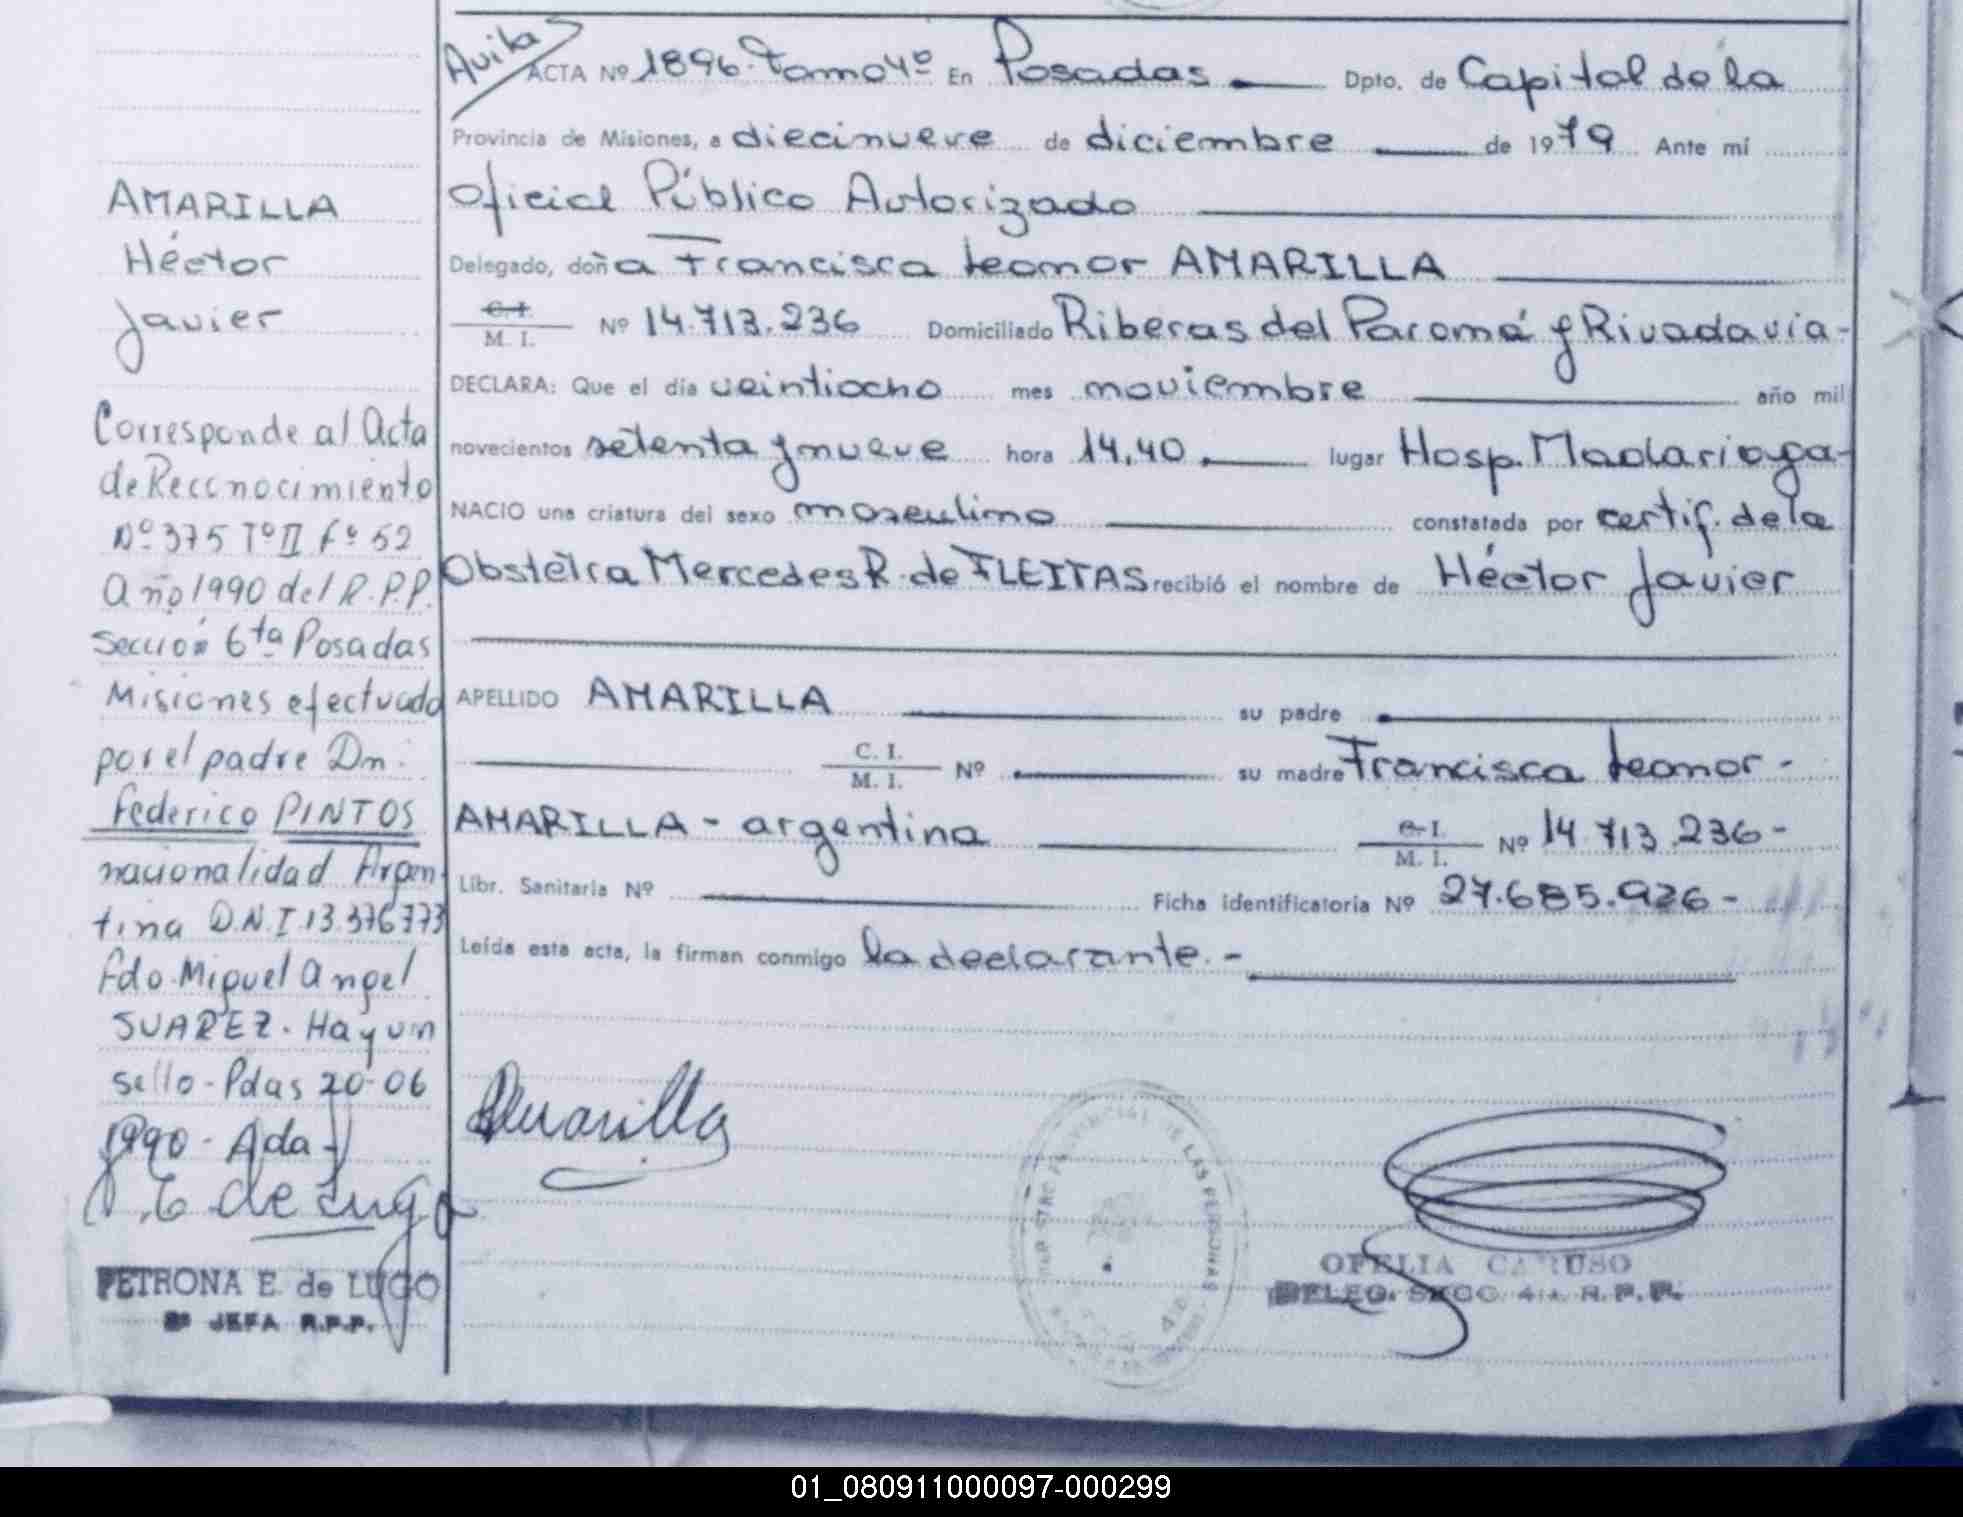 AMARILLA
Héctor
Javier
Corresponde al Acta
de Reconocimiento
Nº 375 Tº II Fº 52
Año 1990 del R.P.P.
Sección 6ta Posadas
Misiones efectuado
por el padre Dn.
Federico PINTOS
nacionalidad Argen-
tina D.N.I 13.376773
Fdo. Miguel Angel
SUAREZ. Hay un
sello - Pdas 20-06
1990 - Ada -
E de Lugo
PETRONA E. de LUGO
JEFA R.P.P.
Avila
ACTA Nº 1896. Tomo 4º En Posadas Dpto. de Capital de la
Provincia de Misiones, a diecinueve de diciembre de 1979 Ante mí
Oficial Público Autorizado
Delegado, doña Francisca Leonor AMARILLA
C.I.
M. I. Nº 14.713.236 Domiciliado Riberas del Paraná y Rivadavia-
DECLARA: Que el día veintiocho mes noviembre año mil
novecientos setenta y nueve hora 14,40. lugar Hosp. Madariaga-
NACIO una criatura del sexo masculino constatada por certif. de la
Obstétra Mercedes R. de FLEITAS recibió el nombre de Héctor Javier
APELLIDO AMARILLA su padre
C. I.
M. I. Nº su madre Francisca Leonor -
AMARILLA - argentina C.I.
M. I. Nº 14.713.236-
Libr. Sanitaria Nº Ficha identificatoria Nº 27.685.926-
Leída esta acta, la firman conmigo la declarante.-
Amarilla
PROVINCIAL DE LAS PERSONAS
OFELIA CARUSO
DELEG. SECC 4ta R.P.P.
01_080911000097-000299